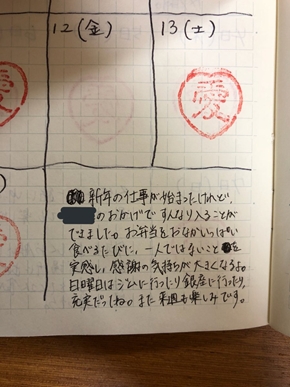 12(金)
13(土)
愛
愛
新年の仕事が始まったけれど、
のおかげですんなり入ることが
できました。お弁当をおなかいっぱい
食べるたびに、一人ではないことを
実感し、感謝の気持ちが大きくなるよ。
日曜日はジムに行ったり銀座に行ったり、
充実だったね。また来週も楽しみです。